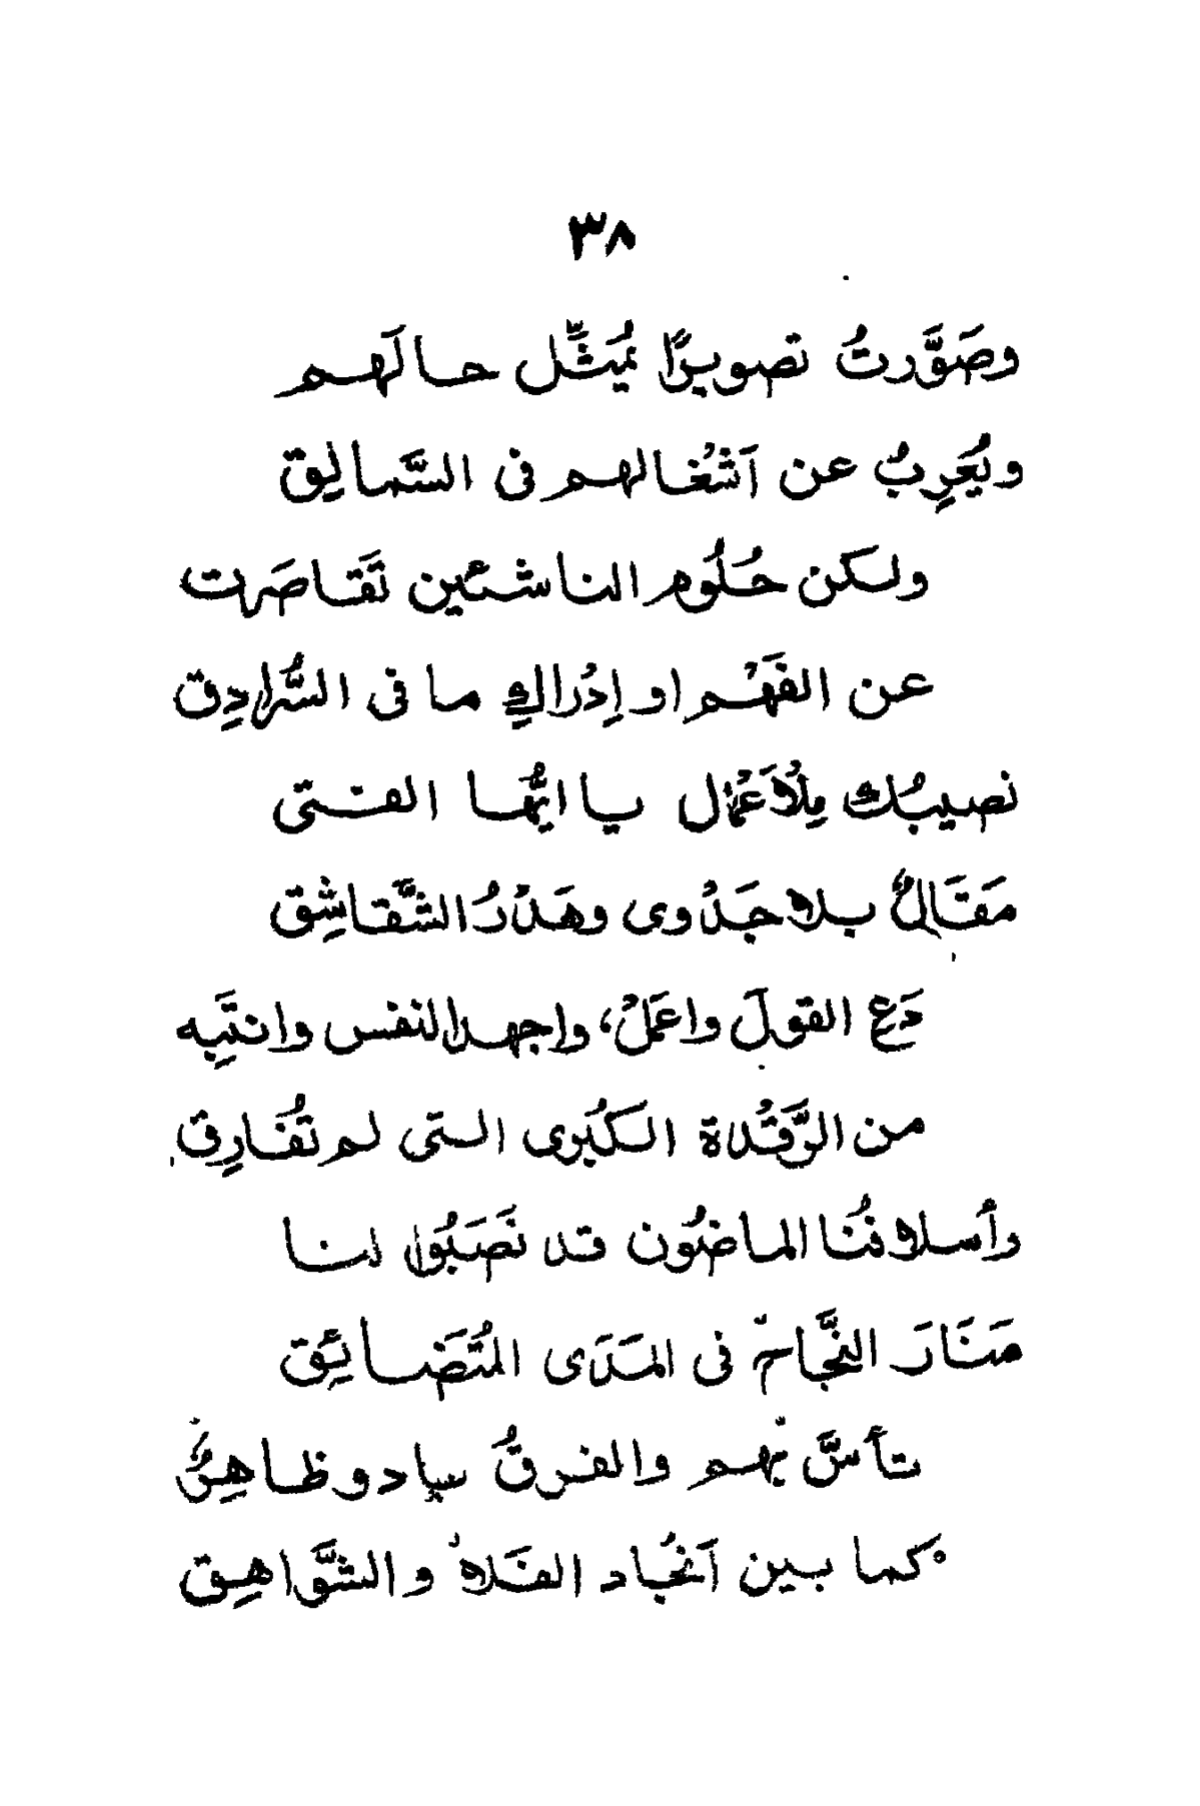 ٣٨
وصَوَّرتُ تصويرًا يُمَثِّل حالَهم
ويُعَرِبُ عن اَشْغالهم فى السَّمالِق
ولكن حُلُوم الناشئين تَقَاصَرت
عن الفَهْم او اِدْراكِ ما فى السُّرادِق
نصيبُك مِلْاَعْمال يا ايُّها الفتى
مَقَالٌ بلا جَدْوى وهَدْرُ الشَّقاشِق
دَعِ القولَ واعمَلْ، واجهد النفس وانتَبِه
من الرَّقْدة الكُبرى التى لم تُفَارِق
وأسلافُنا الماضُون قد نَصَبُوا لنا
مَنَارَ النَّجاح فى المَدَى المُتَضَائِق
تأسَّ بهم والفرقُ بادٍ وظاهِرٌ
كما بين اَنْجاد الفَلا والشَّواهِق